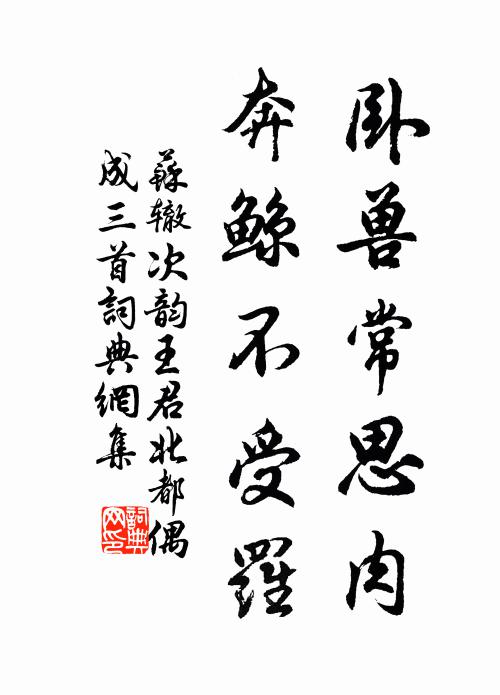 卧兽常思肉
奔鲸不受羅
蘇辙次韵王君北都偶
成三首詞典網集
詞典
网印